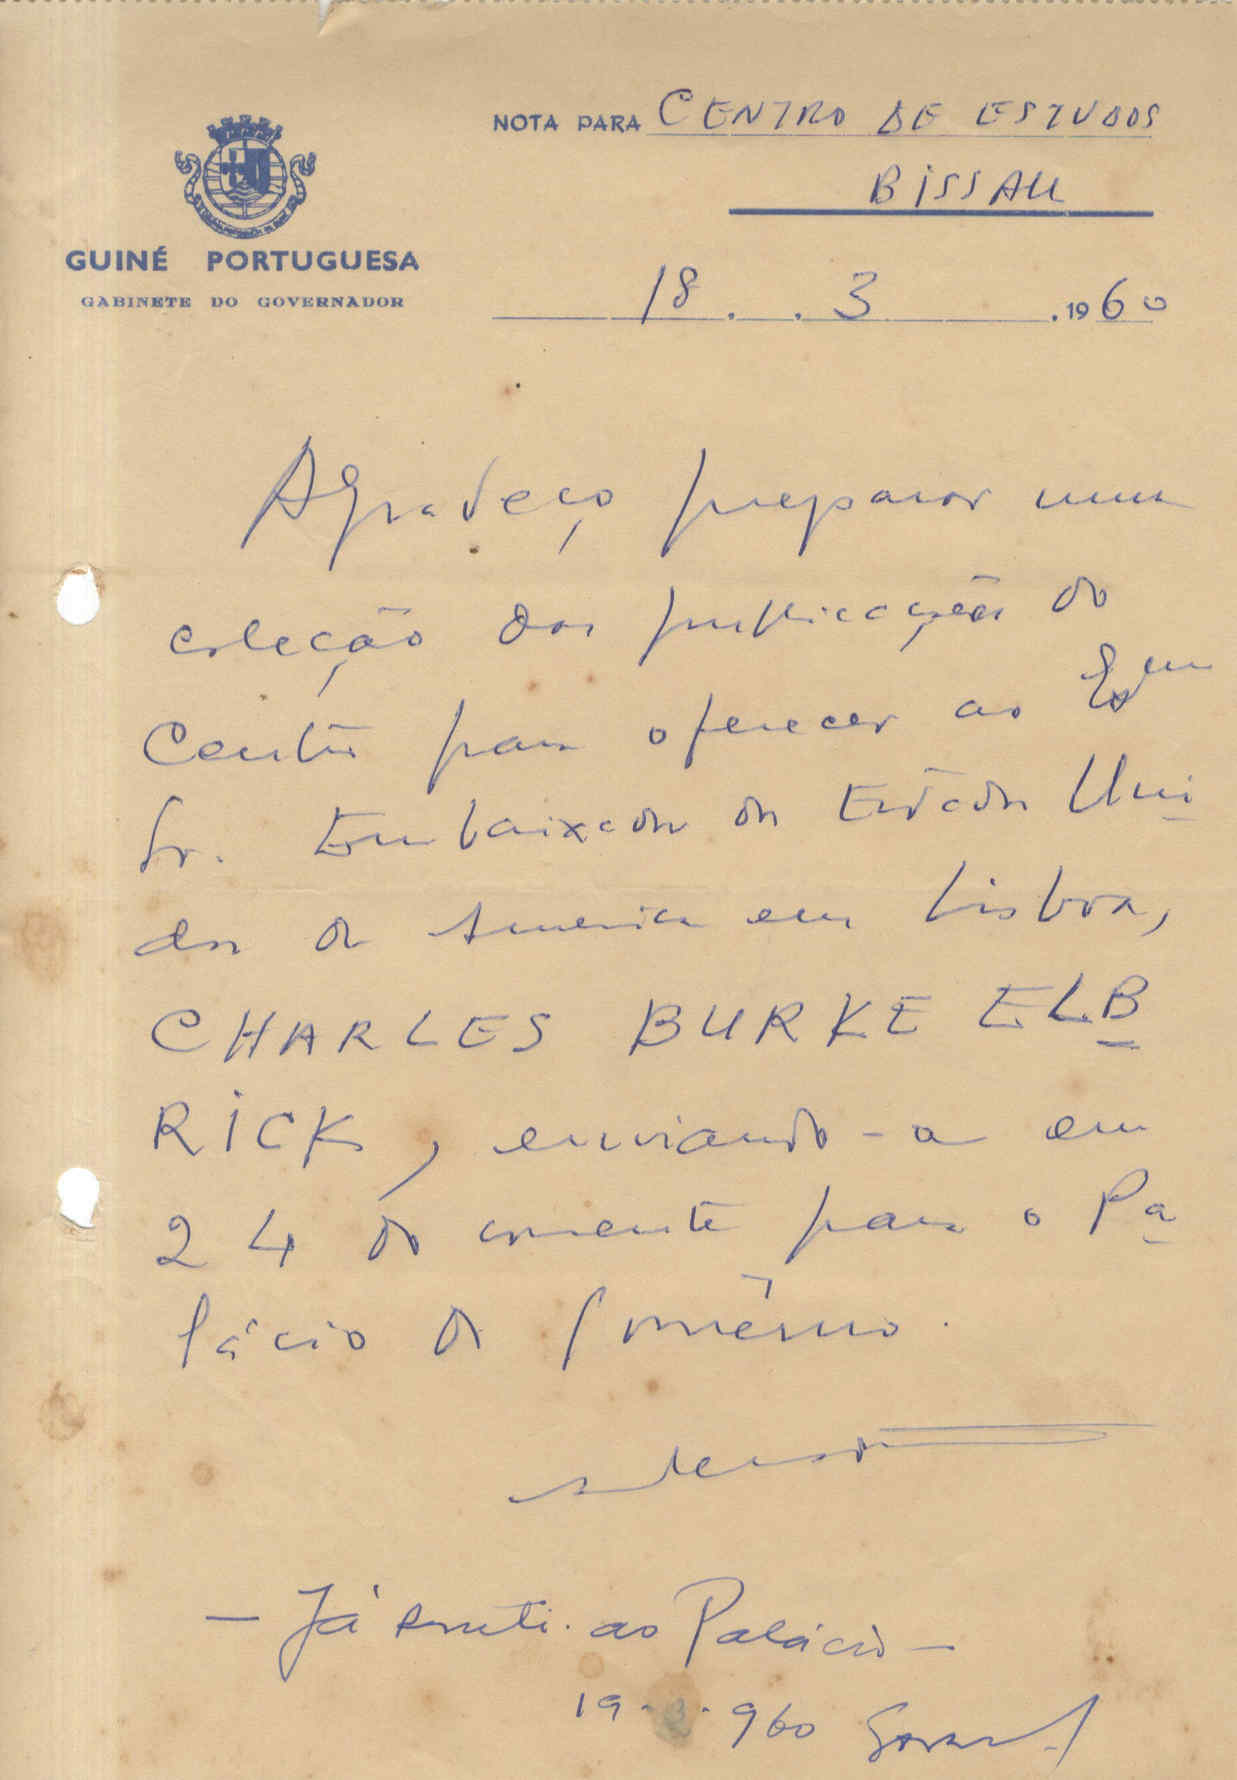 NOTA PARA CENTRO DE ESTUDOS
BISSAU
GUINÉ PORTUGUESA
GABINETE DO GOVERNADOR
18 . . 3 . 1960
Agradeço preparar uma
coleção das publicações do
Centro para oferecer ao Exmº
Sr. Embaixador dos Estados Uni-
dos da America em Lisboa,
CHARLES BURKE ELB-
RICK, enviando-a em
24 do corrente para o Pa-
lácio do Govêrno.
— Já remeti ao Palácio —
19-3-960